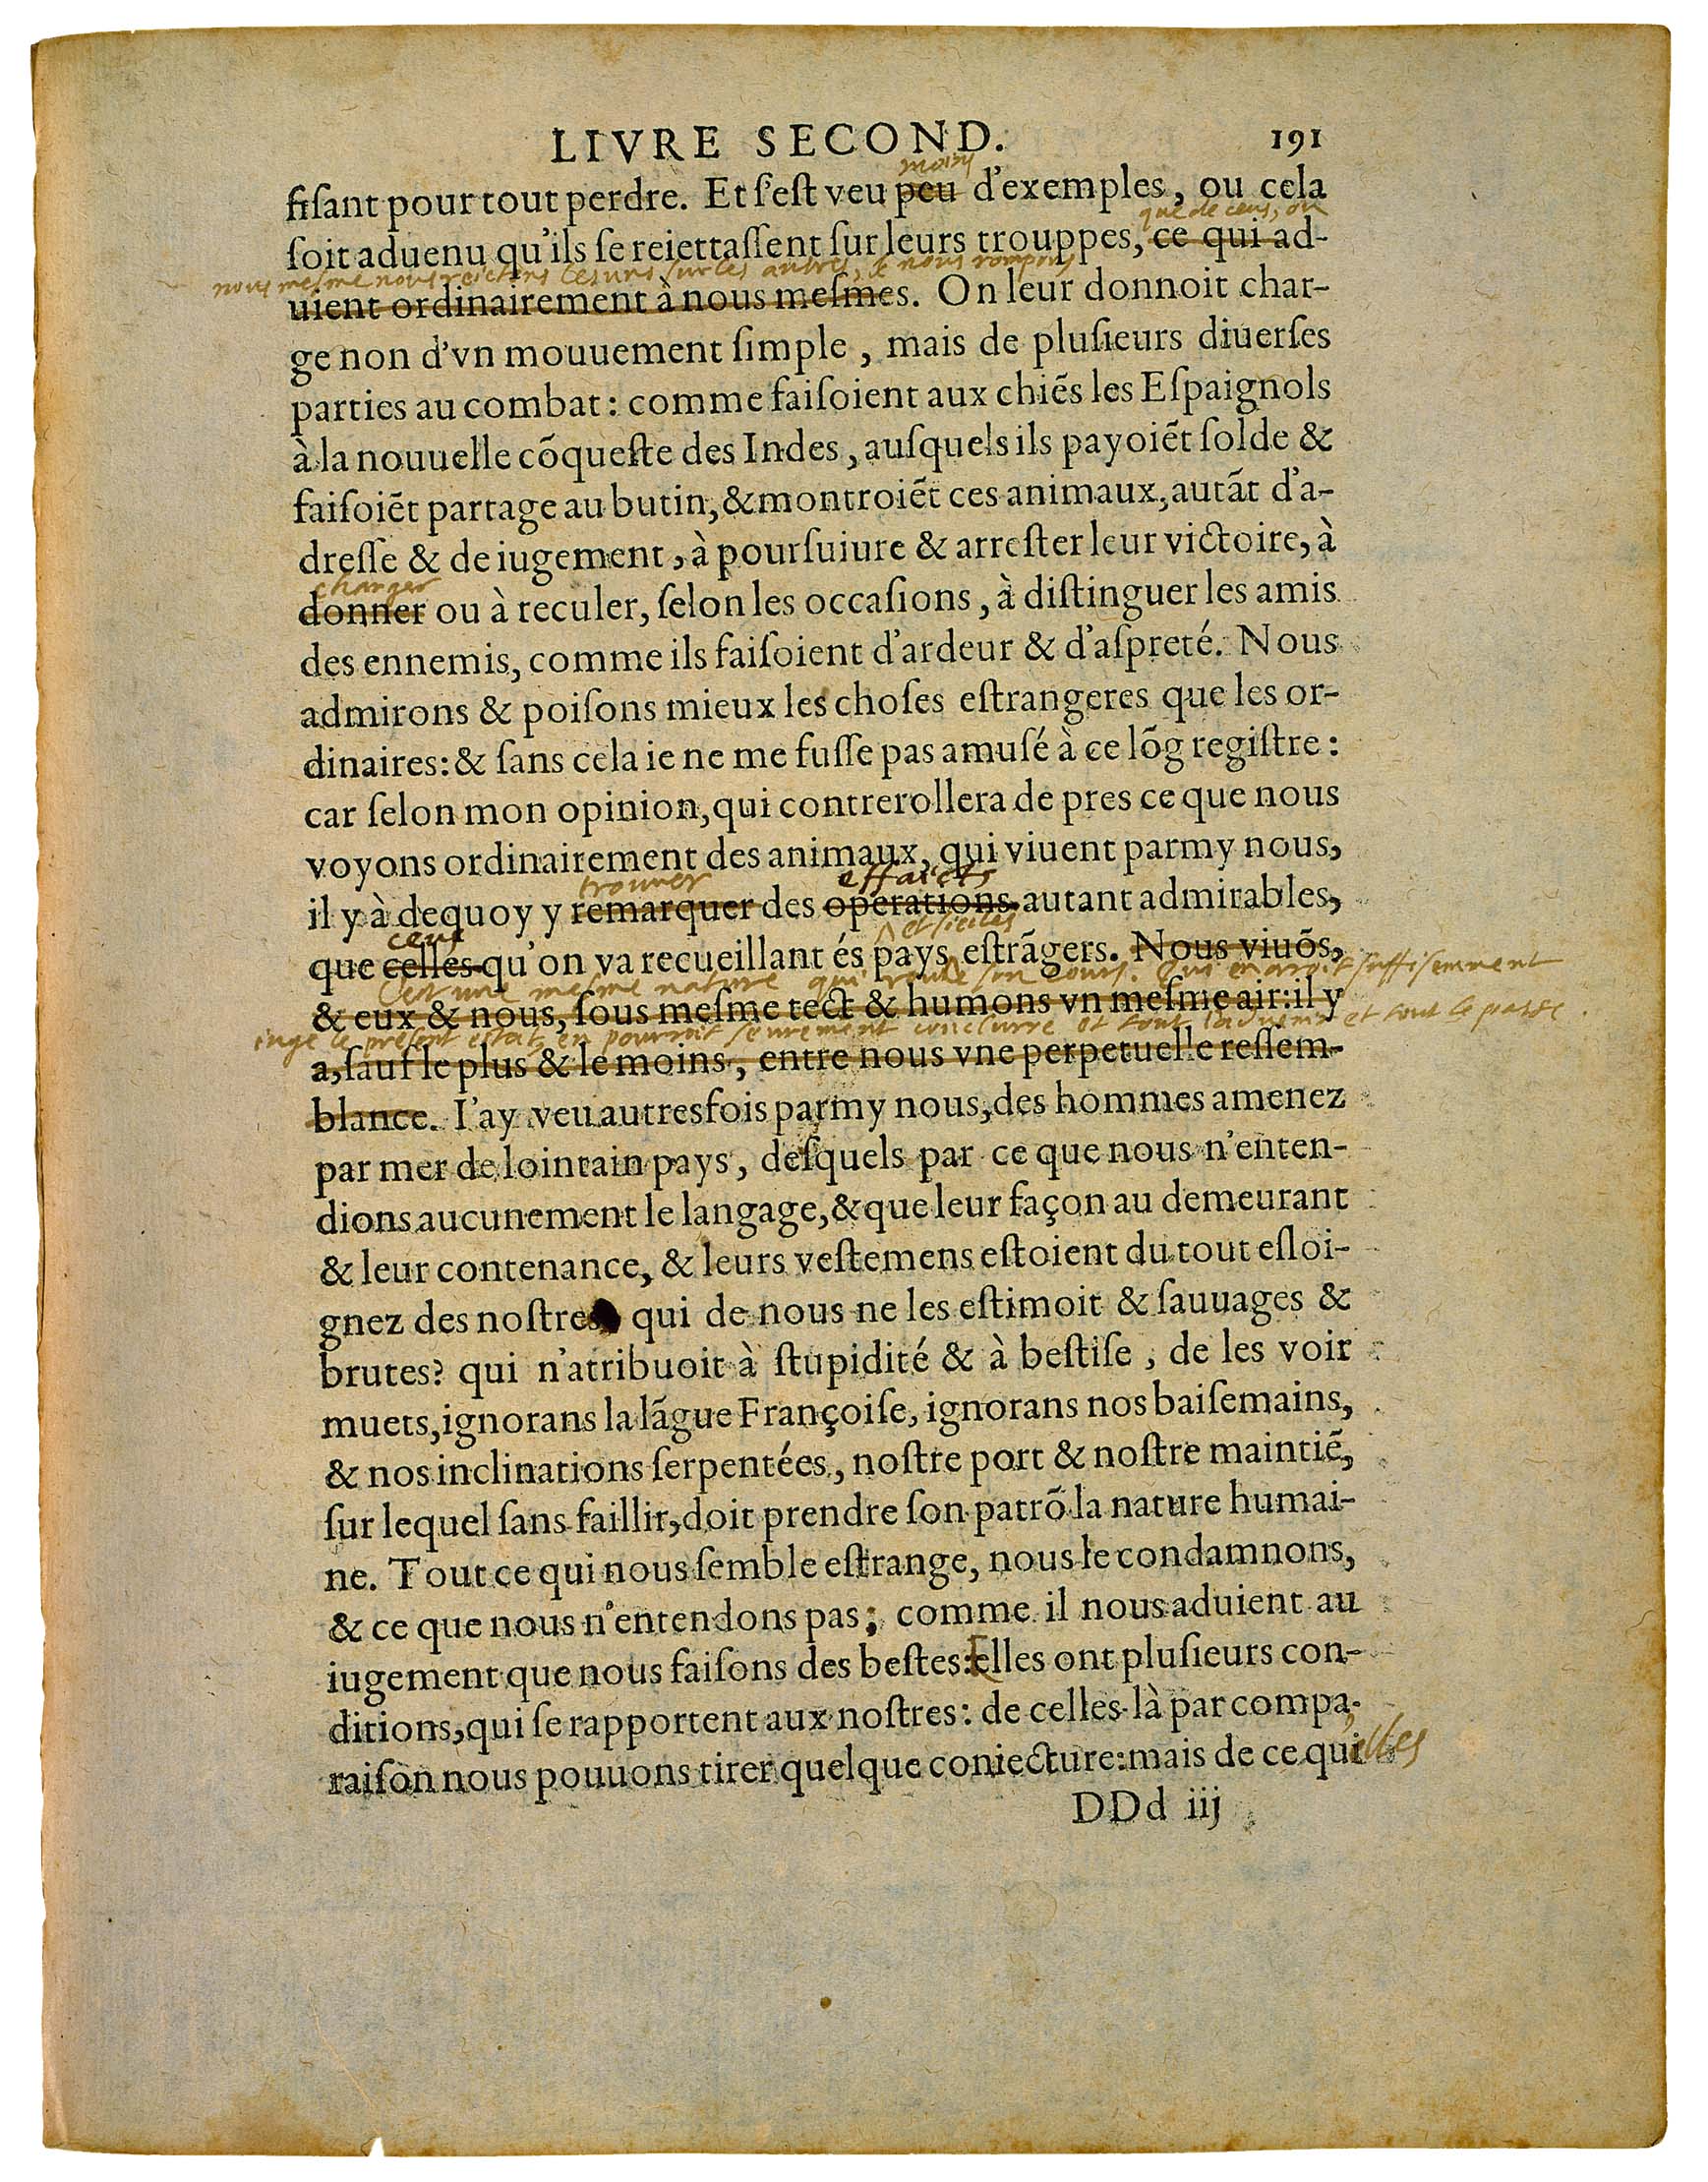 LIVRE SECOND. 191
moins
fiſant pour tout perdre. Et ſ'eſt veu peu d'exemples, ou cela
que de ceus, ou
ſoit aduenu qu'ils ſe reiettaſſent ſur leurs trouppes, ce qui ad-
nous mesme nous reietons les uns sur les autres, & nous rompons
uient ordinairement à nous meſmes. On leur donnoit char-
ge non d'vn mouuement ſimple, mais de pluſieurs diuerſes
parties au combat: comme faiſoient aux chiẽs les Eſpaignols
à la nouuelle cõqueſte des Indes, auſquels ils payoiẽt ſolde &
faiſoiẽt partage au butin, & montroiẽt ces animaux, autãt d'a-
dreſſe & de iugement, à pourſuiure & arreſter leur victoire, à
charger
donner ou à reculer, ſelon les occaſions, à diſtinguer les amis
des ennemis, comme ils faiſoient d'ardeur & d'aſpreté. Nous
admirons & poiſons mieux les choſes eſtrangeres que les or-
dinaires: & ſans cela ie ne me fuſſe pas amuſé à ce lõg regiſtre:
car ſelon mon opinion, qui contrerollera de pres ce que nous
voyons ordinairement des animaux, qui viuent parmy nous,
trouver effaicts
il y à dequoy y remarquer des operations autant admirables,
ceus et siecles
que celles qu'on va recueillant és pays eſtrãgers. Nous viuõs,
C'est une mesme nature qui roule son cours. Qui en aroit suffisemment
& eux & nous, ſous meſme tect & humons vn meſme air: il y
iugé le present estat, en pourroit seurement conclurre et tout l'advenir et tout le passé.
a, ſauf le plus & le moins, entre nous vne perpetuelle reſſem-
blance. I'ay veu autresfois parmy nous, des hommes amenez
par mer de lointain pays, deſquels par ce que nous n'enten-
dions aucunement le langage, & que leur façon au demeurant
& leur contenance, & leurs veſtemens eſtoient du tout eſloi-
gnez des noſtres qui de nous ne les eſtimoit & ſauuages &
brutes? qui n'atribuoit à ſtupidité & à beſtiſe, de les voir
muets, ignorans la lãgue Françoiſe, ignorans nos baiſemains,
& nos inclinations ſerpentées, noſtre port & noſtre maintiẽ,
ſur lequel ſans faillir, doit prendre ſon patrõ la nature humai-
ne. Tout ce qui nous ſemble eſtrange, nous le condamnons,
& ce que nous n'entendons pas; comme il nous aduient au
iugement que nous faiſons des beſtes: Elles ont pluſieurs con-
ditions, qui ſe rapportent aux noſtres: de celles-là par compa-
raiſon nous pouuons tirer quelque coniecture: mais de ce qui elles
DDd iij